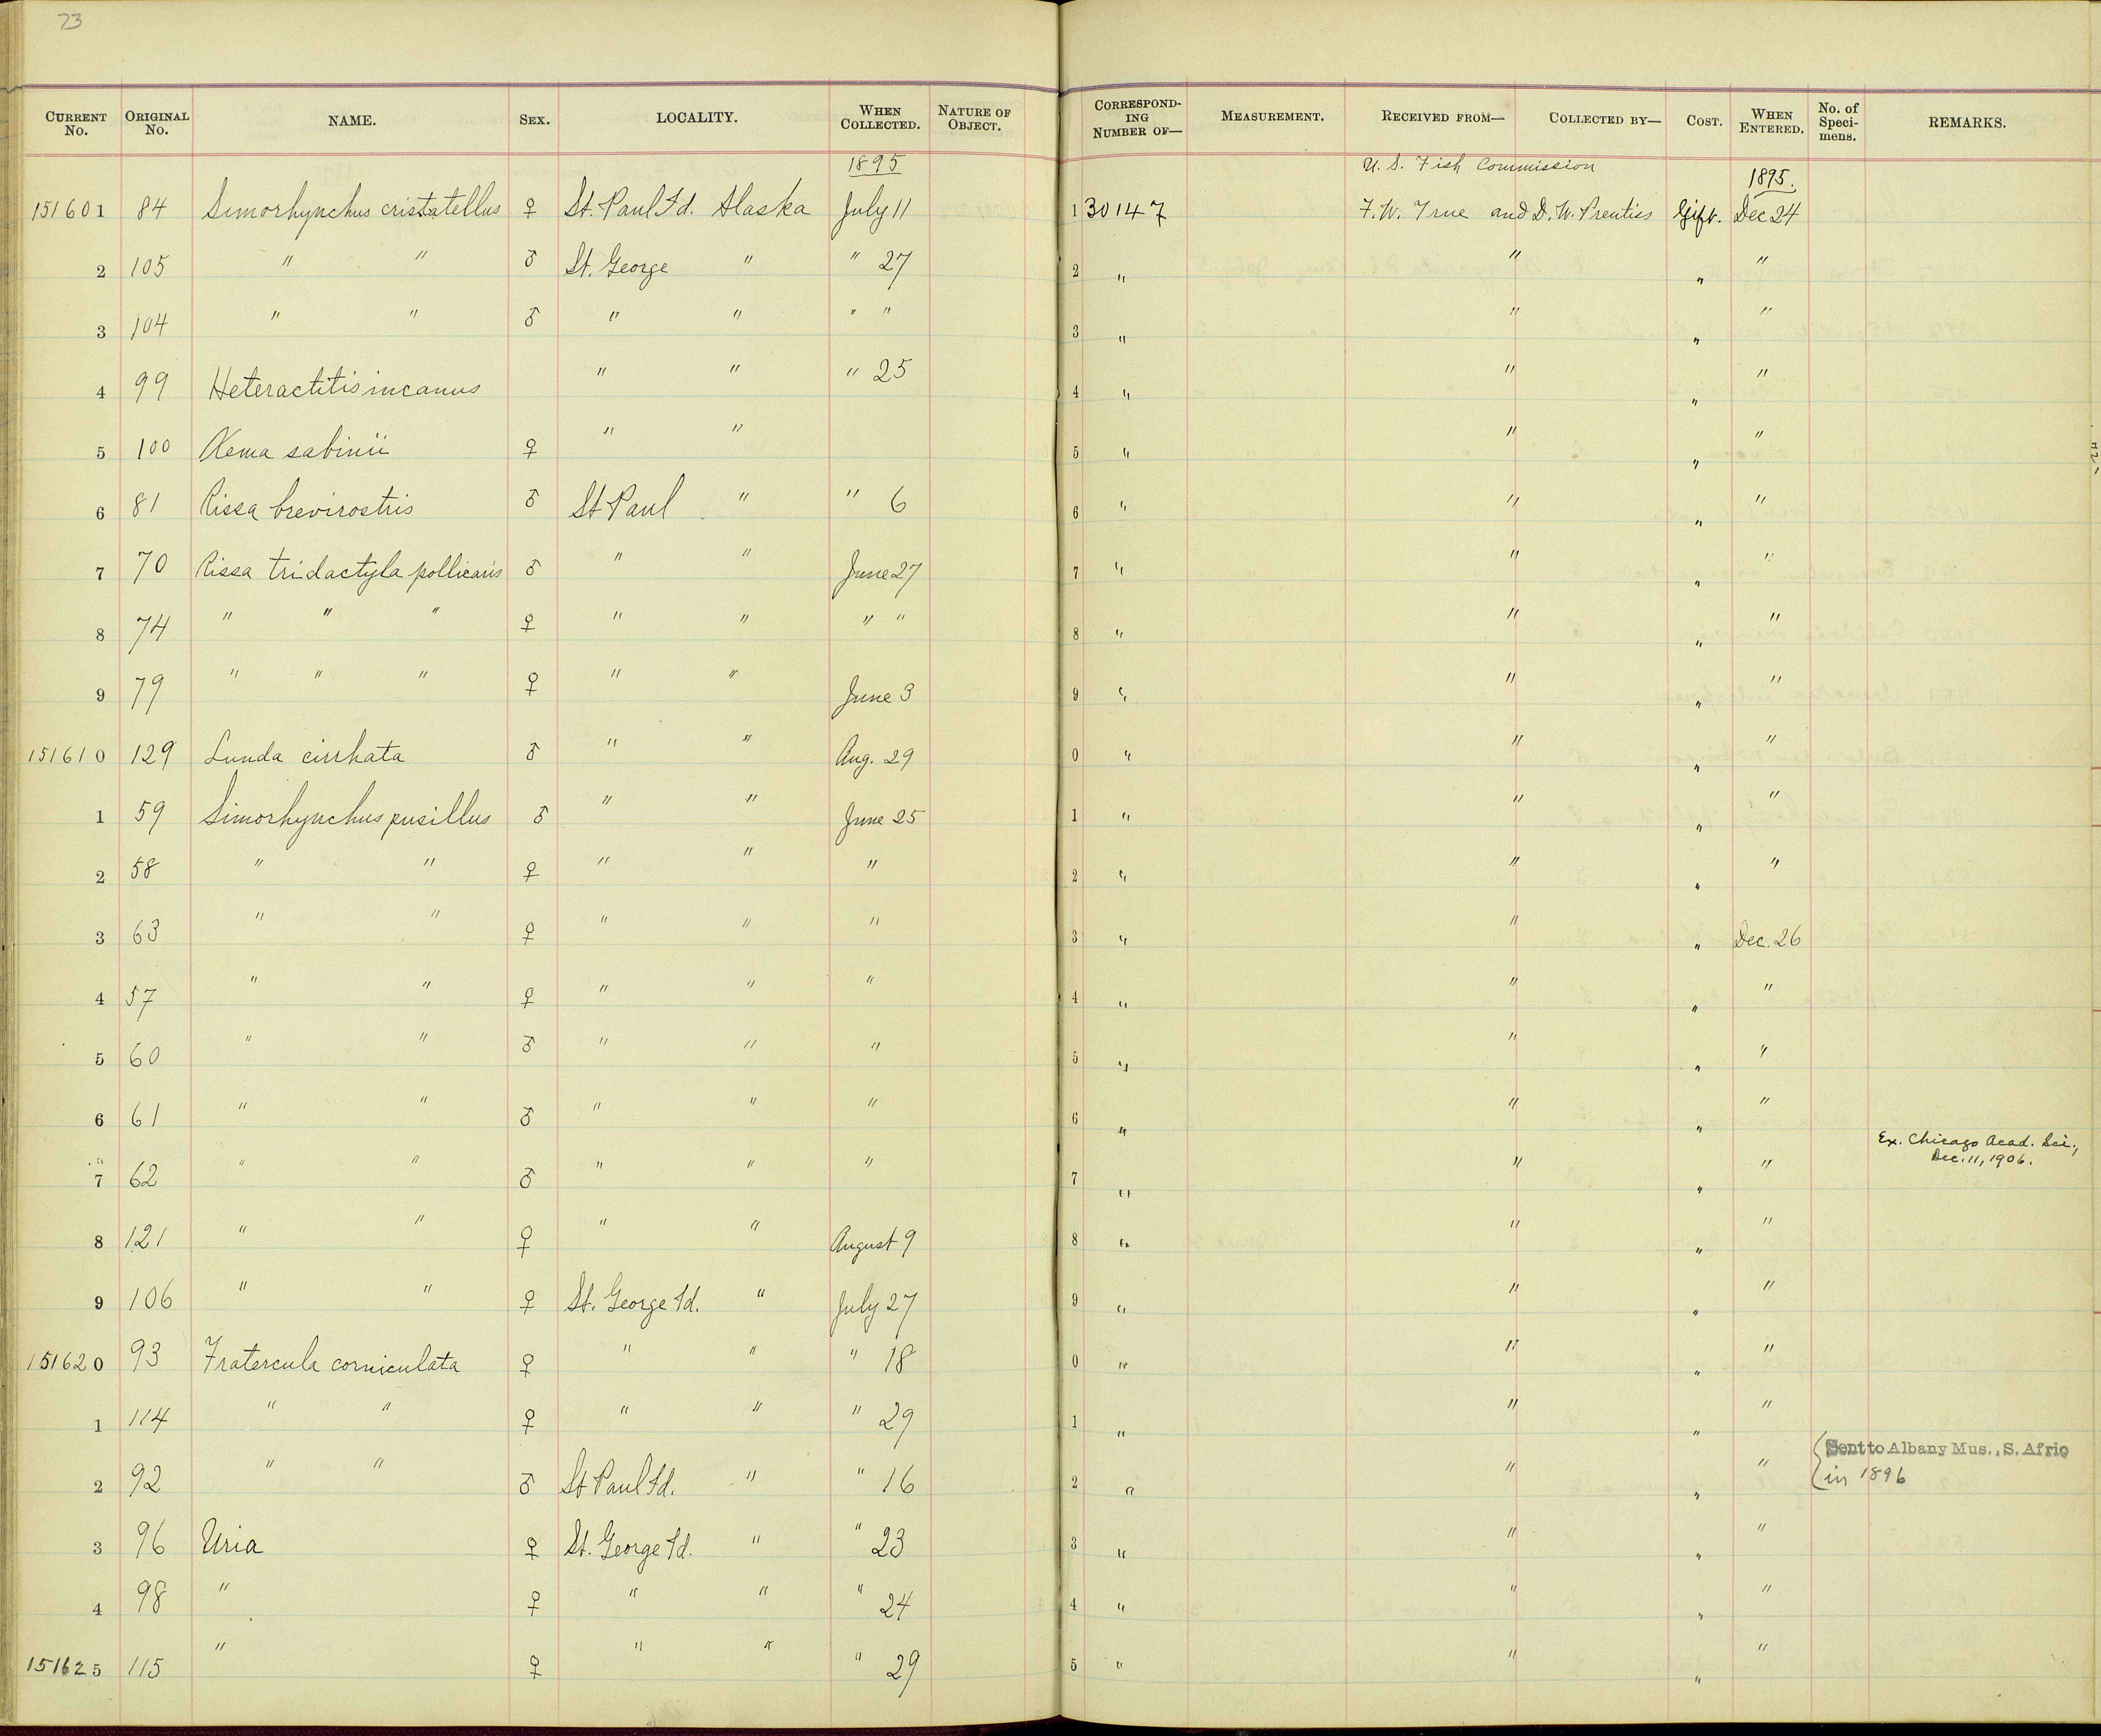 73
CURRENT No. ORIGINAL No. NAME. SEX. LOCALITY. WHEN COLLECTED. NATURE OF OBJECT. CORRESPOND-ING NUMBER OF— MEASUREMENT. RECEIVED FROM— COLLECTED BY— COST. WHEN ENTERED. No. of Speci-mens. REMARKS.
1895 U. S. Fish Commission 1895.
151601 84 Simorhynchus cristatellus ♀ St. Paul Id. Alaska July 11 1 30147 F. W. True and D. W. Prentiss Gift. Dec 24
2 105 " " ♂ St. George " " 27 2 " " " "
3 104 " " ♂ " " " " 3 " " " "
4 99 Heteractitis incanus " " " 25 4 " " " "
5 100 Xema sabinii ♀ " " 5 " " " "
6 81 Rissa brevirostris ♂ St Paul " " 6 6 " " " "
7 70 Rissa tridactyla pollicaris ♂ " " June 27 7 " " " "
8 74 " " " ♀ " " " " 8 " " " "
9 79 " " " ♀ " " June 3 9 " " " "
151610 129 Lunda cirrhata ♂ " " Aug. 29 0 " " " "
1 59 Simorhynchus pusillus ♂ " " June 25 1 " " " "
2 58 " " ♀ " " " 2 " " " "
3 63 " " ♀ " " " 3 " " " Dec. 26
4 57 " " ♀ " " " 4 " " " "
5 60 " " ♂ " " " 5 " " " "
6 61 " " ♂ " " " 6 " " " "
7 62 " " ♂ " " " 7 " " " " Ex. Chicago Acad. Sci., Dec. 11, 1906.
8 121 " " ♀ " " August 9 8 " " " "
9 106 " " ♀ St. George Id. " July 27 9 " " " "
151620 93 Fratercula corniculata ♀ " " " 18 0 " " " "
1 114 " " ♀ " " " 29 1 " " " "
2 92 " " ♂ St Paul Id. " " 16 2 " " " " Sent to Albany Mus., S. Afric in 1896
3 96 Uria ♀ St. George Id. " " 23 3 " " " "
4 98 " ♀ " " " 24 4 " " " "
151625 115 " ♀ " " " 29 5 " " " "